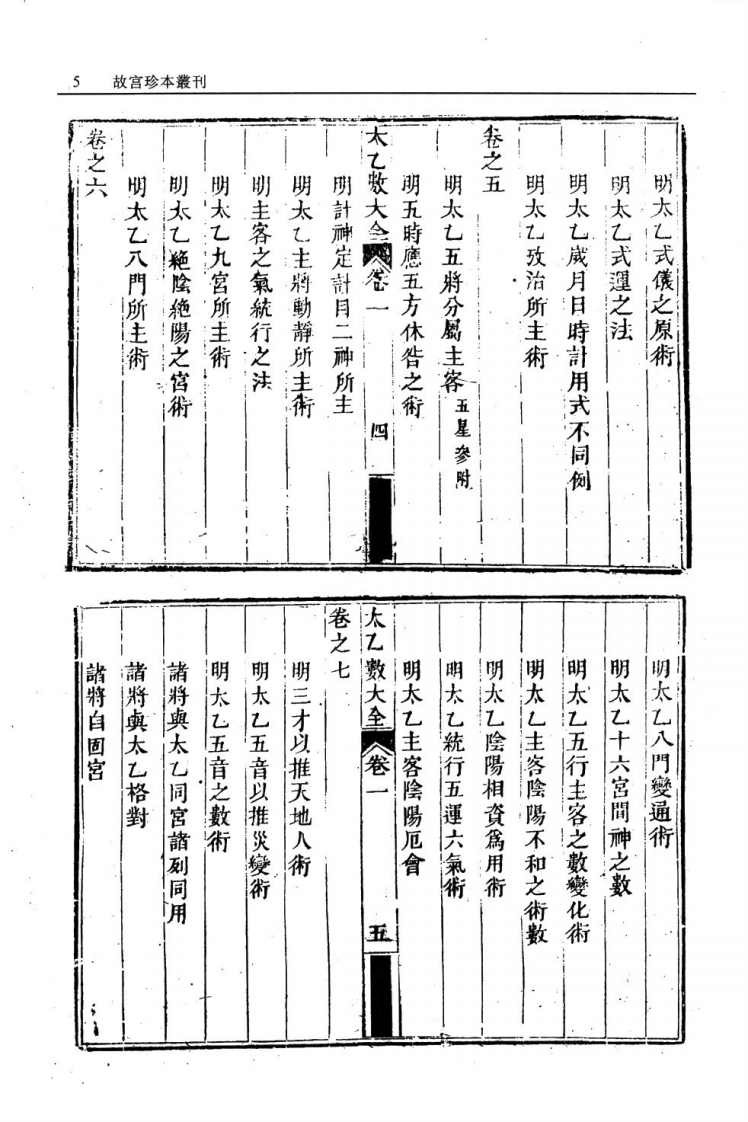 5 故宮珍本叢刊
明太乙式儀之原術
明太乙式運之法
明太乙歲月日時計用式不同例
明太乙攷治所主術
卷之五
明太乙五將分屬主客 五星參附
明五時應五方休咎之術
太乙數大全 卷一 四
明計神定計目二神所主
明太乙主將動靜所主術
明主客之氣統行之法
明太乙九宮所主術
明太乙絕陰絕陽之宮術
明太乙八門所主術
卷之六
明太乙八門變通術
明太乙十六宮間神之數
明太乙五行主客之數變化術
明太乙主客陰陽不和之術數
明太乙陰陽相資爲用術
明太乙統行五運六氣術
明太乙主客陰陽厄會
太乙數大全 卷一 五
卷之七
明三才以推天地人術
明太乙五音以推災變術
明太乙五音之數術
諸將與太乙同宮諸列同用
諸將與太乙格對
諸將自囬宮